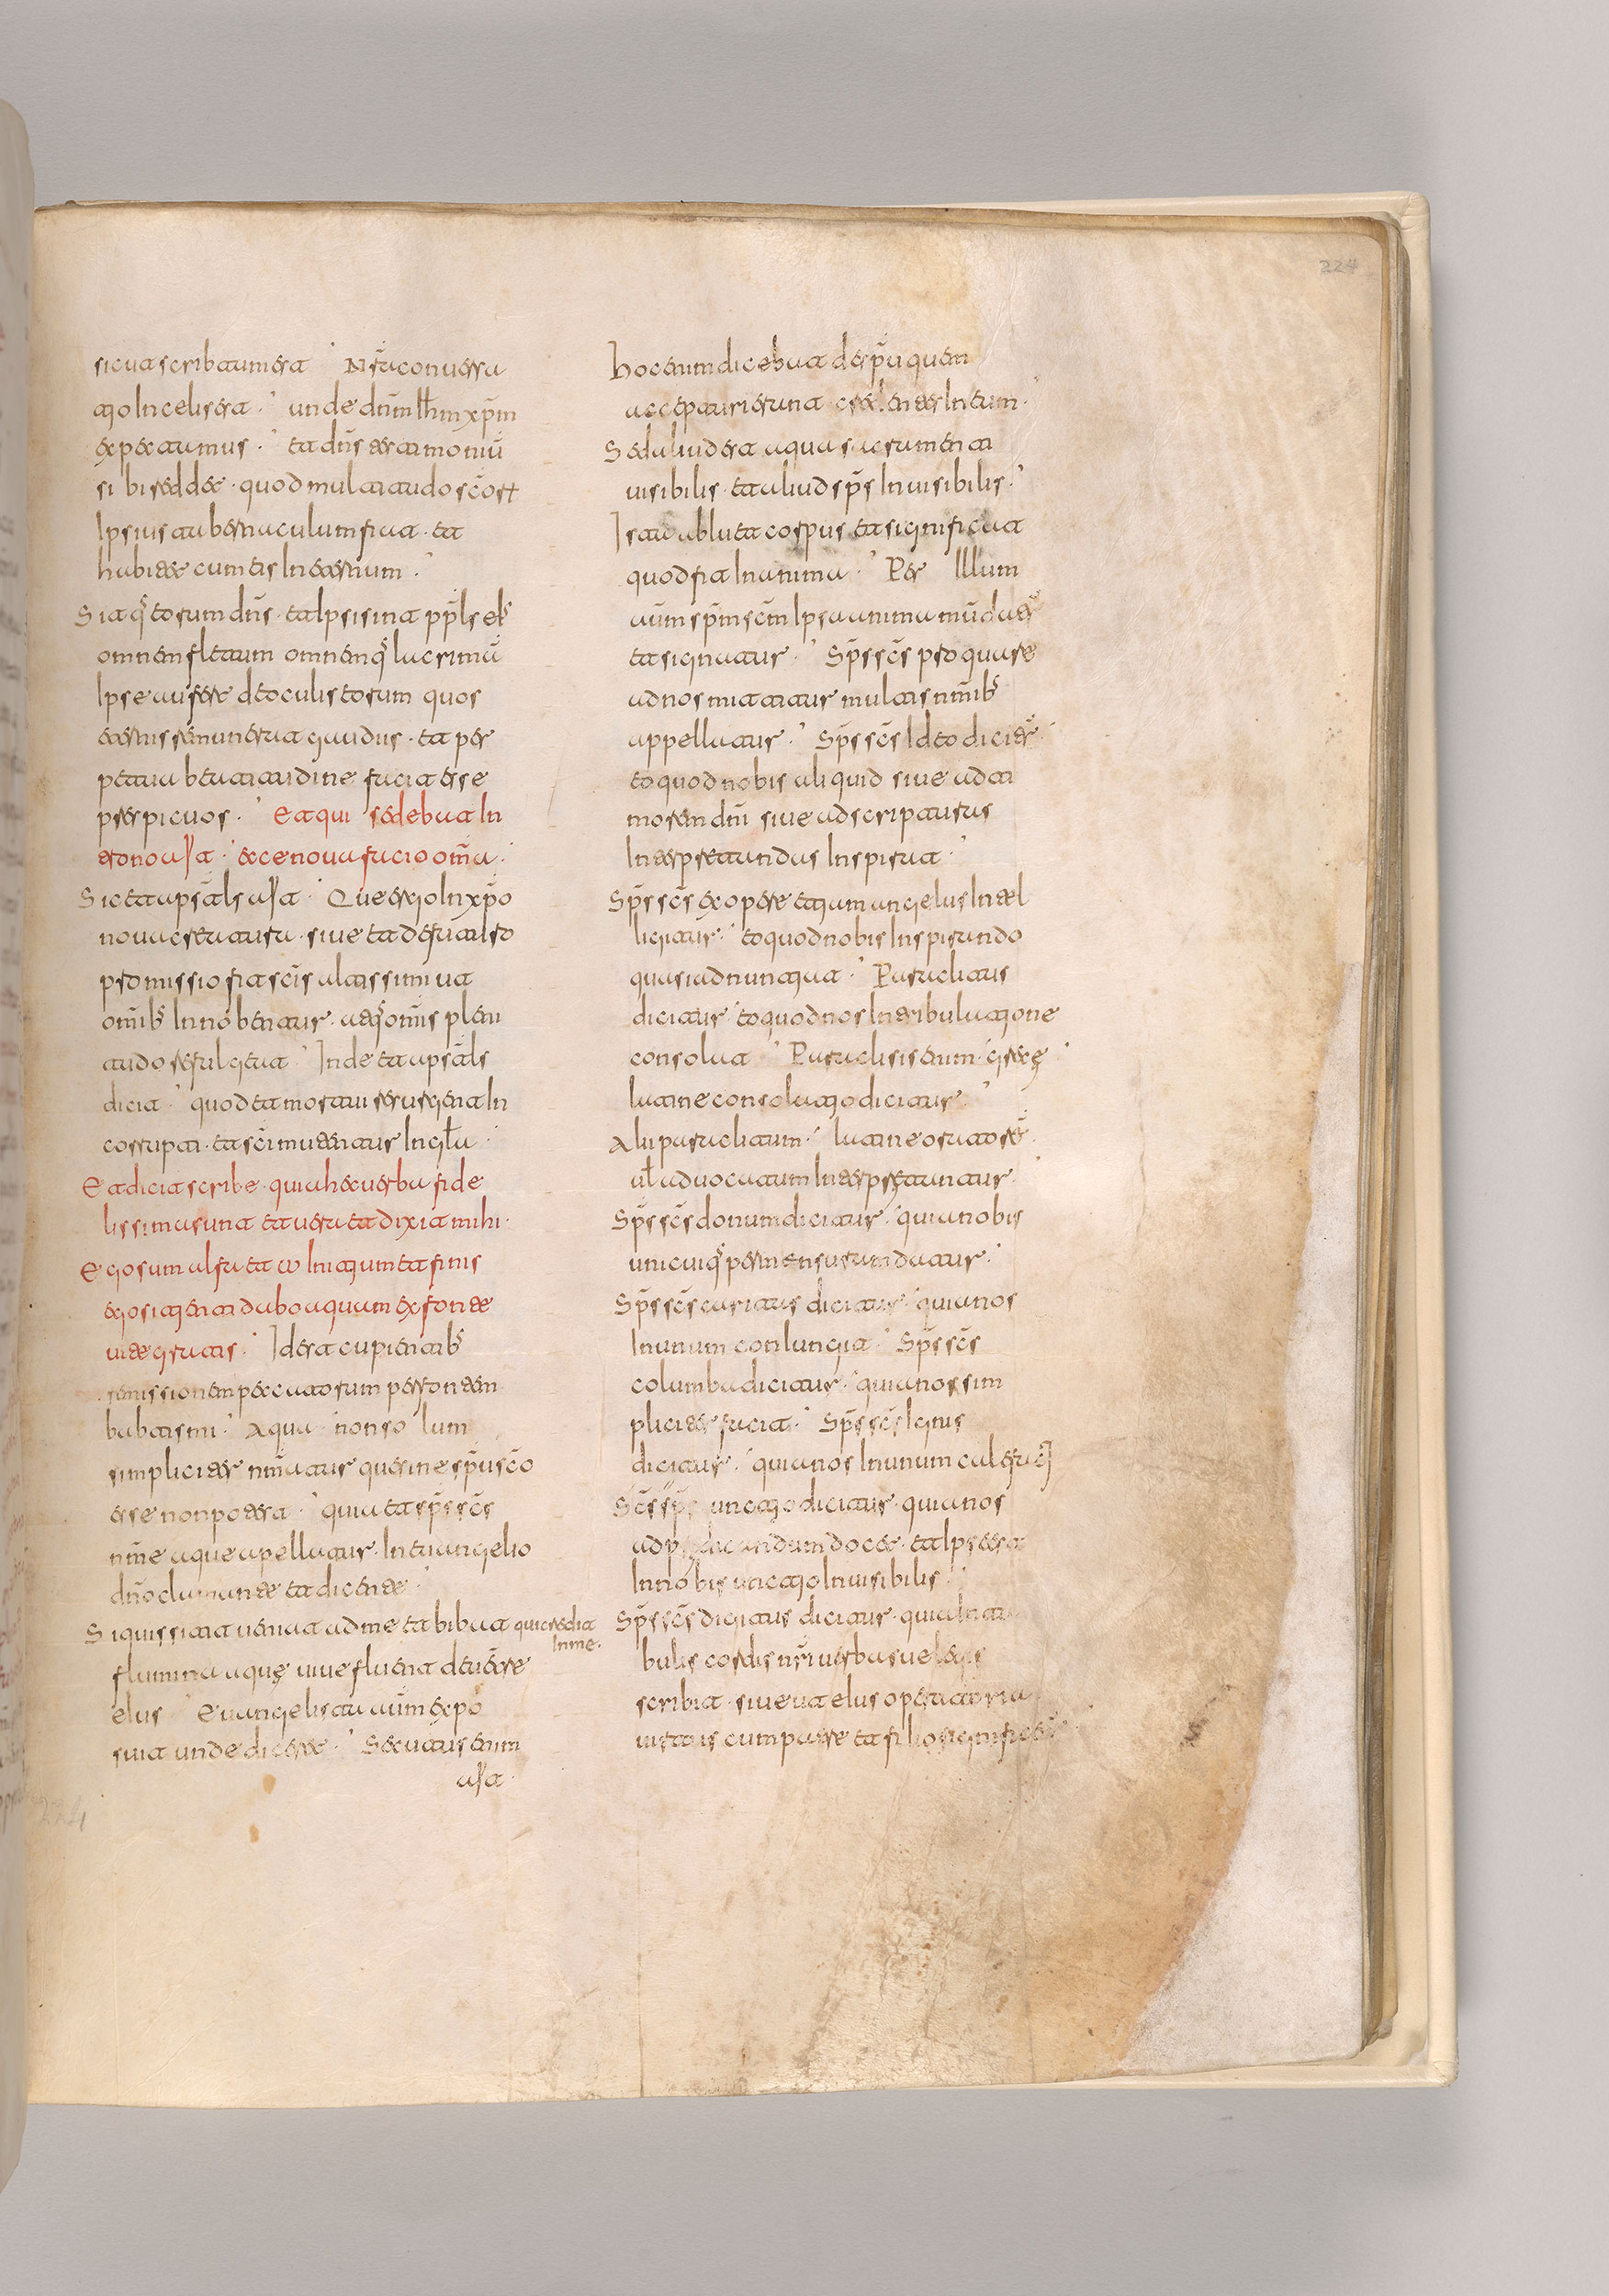 sicut scribtum est · Nsa conversa
tio in celis est · unde dnm ihm xpm
expectamus · et dns testimoniu
sibi reddet · quod multitudo scor
ipsius tabernaculum fiat · et
habitet cum eis in eternum ·
Sitq eorum dns · et ipsi sint ppls eis
omnem fletum omnemq lacrima
ipse auferet de oculis eorum quos
eternis remunerat gaudiis · et per
petua beatitudine faciat esse
perspicuos · Et qui sedebat in
trono ait · ecce nova facio oma ·
Sic et apstls ait · Que ergo in xpo
nova creatura · sive et
promissio fiat scis altissimi ut
omib innobentur · atq omis pleni
tudo refulgeat · Inde et apstls
dicit · quod et mortui resurgent in
corrupti · et sci mutentur in gla ·
Et dicit scribe · quia hec verba fide
lissima sunt et vera et dixit mihi ·
Ego sum alfa et ω initium et finis
ego sitienti dabo aquam ex fonte
vite gratis · Id est cupientib
remissionem peccatorum per fontem
babtismi · Aqua non solum
simpliciter nmatur que sine spu sco
esse non potest · quia et sps scs
nme aque apellatur · in euangelio
dno clamante et dicente ·
Si quis sitit veniat ad me et bibat qui credit
in me ·
flumina aquę vive fluent de ventre
eius Euangelista autm expo
suit unde diceret · Secutus enim
ait ·
hoc enim dicebat de spu quem
accepturi erunt credentes in eum ·
Sed aliud est aqua sacramenti
visibilis · et aliud sps invisibilis ·
Ista abluet corpus et significat
quod fit in anima · Per illum
autm spm scm ipsa anima mudatr
et signatur · Sps scs pro qua re
ad nos mittitur multis nmib
appellatur · Sps scs ideo dicitr ·
eo quod nobis aliquid sive ad ti
morem dni sive ad scripturas
interpretandas inspirat ·
Sps scs ex opere etiam angelus intel
ligitur · eo quod nobis inspirando
quasi adnuntiat · Paraclitus
dicitur · eo quod nos in tribulatione
consolat · Paraclisis enim grecę
latine consolatio dicitur ·
Alii paraclitum · latine oratore
vl advocatum interpretantur ·
Sps scs donum dicitur · quia nobis
unicuiq per mensuram datur ·
Sps scs caritas dicitur · quia nos
in unum coniungit · Sps scs
columba dicitur · quia nos sim
pliciter facit · Sps scs ignis
dicitur · quia nos in unum
Scs sps unctio dicitur · quia nos
ad predicandum docet · et ipse est
in nobis unctio invisibilis ·
Sps scs digitus dicitur · quia in ta
bulis cordis nri verba sue legis
scribit · sive ut eius operatoria
virtus cum patre et filio significetr
224
224